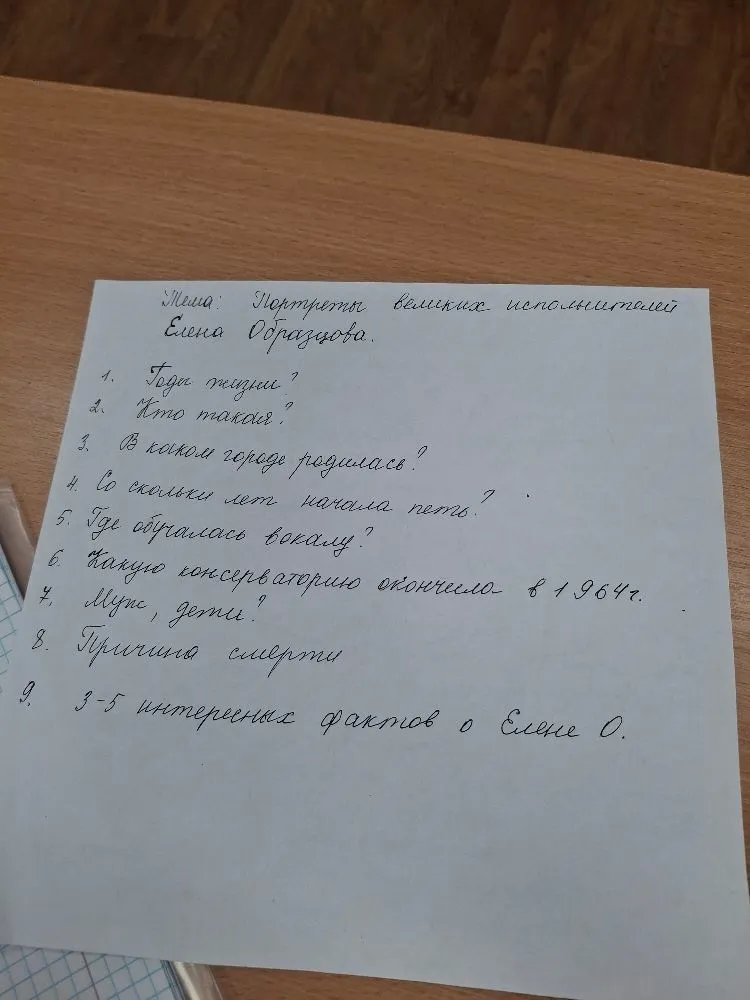 Тема: Портреты великих исполнителей
Елена Образцова.
1. Годы жизни?
2. Кто такая?
3. В каком городе родилась?
4. Со скольки лет начала петь?
5. Где обучалась вокалу?
6. Какую консерваторию окончила в 1964г.
7. Муж, дети?
8. Причина смерти
9. 3-5 интересных фактов о Елене О.